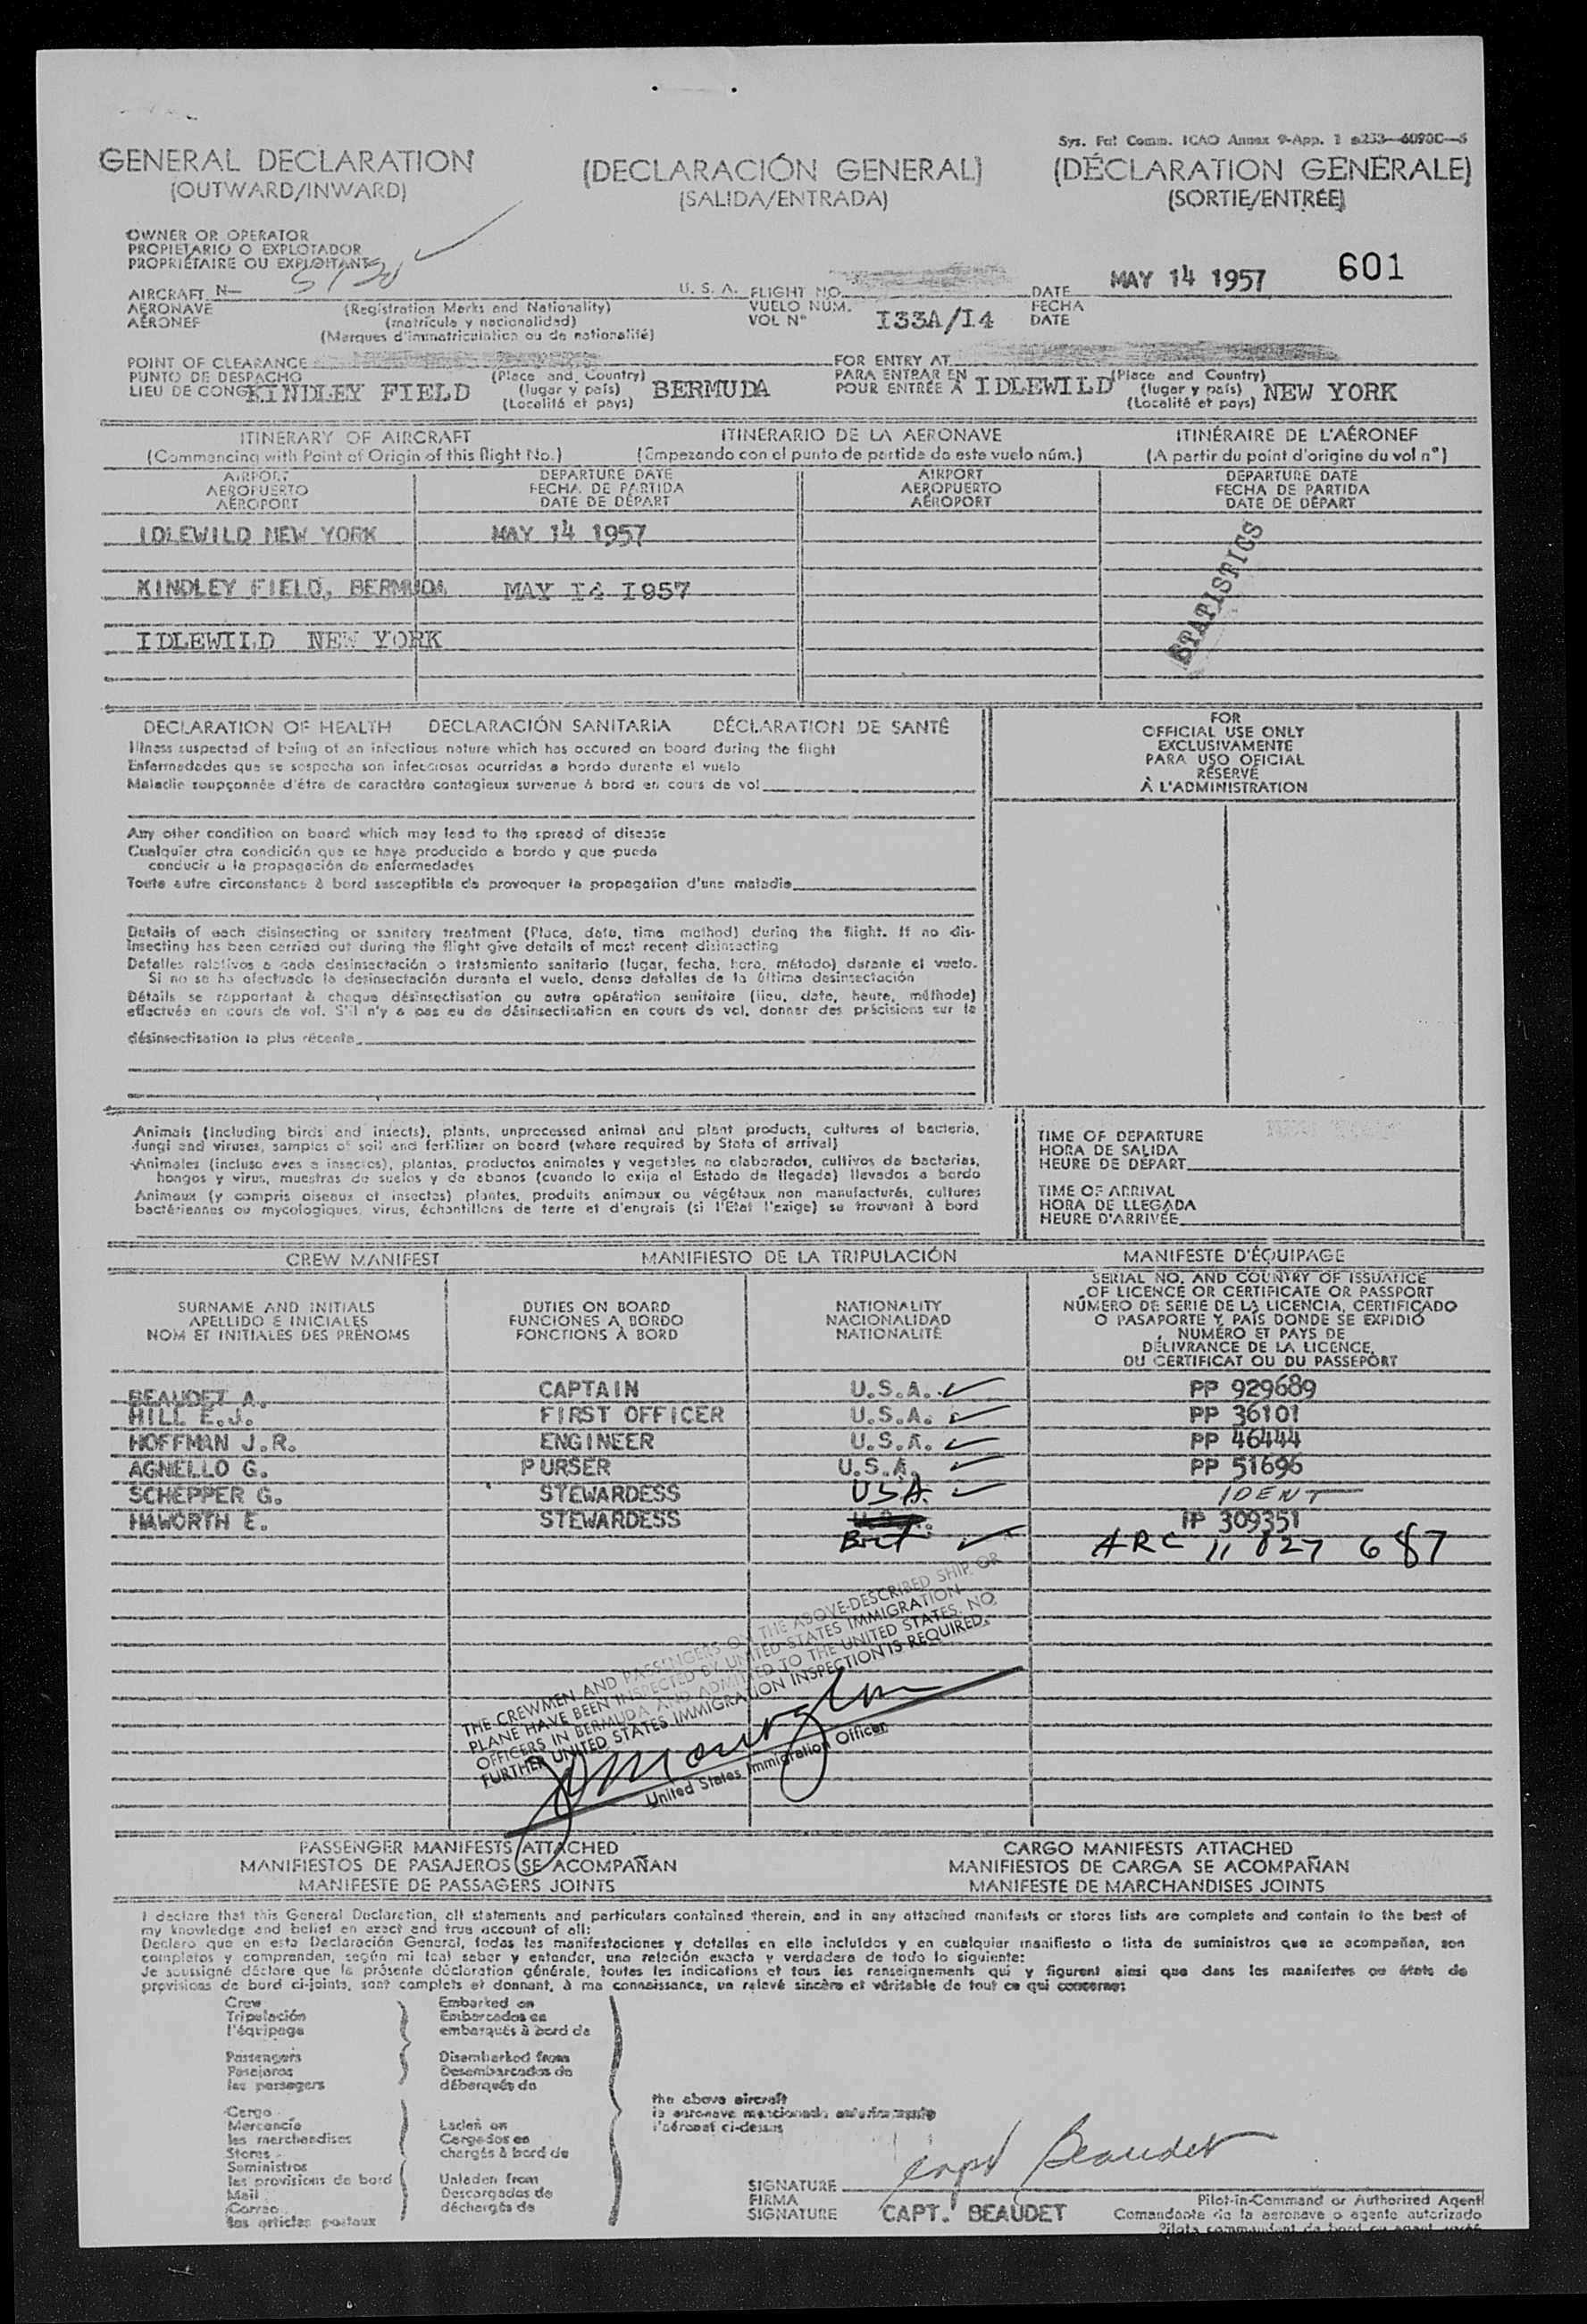 Sys. Fal Comm. ICAO Annex 9-App. 1
GENERAL DECLARATION
(OUTWARD/INWARD)
(DECLARACIÓN GENERAL)
(SALIDA/ENTRADA)
(DÉCLARATION GÉNÉRALE)
(SORTIE/ENTRÉE)
OWNER OR OPERATOR
PROPIETARIO O EXPLOTADOR
PROPRIÉTAIRE OU EXPLOITANT
601
AIRCRAFT N- U. S. A. FLIGHT NO. DATE MAY 14 1957
AERONAVE (Registration Marks and Nationality) VUELO NÚM. FECHA
AÉRONEF (matrícula y nacionalidad) VOL N° I33A/I4 DATE
(Marques d'immatriculation ou de nationalité)
POINT OF CLEARANCE FOR ENTRY AT
PUNTO DE DESPACHO (Place and Country) PARA ENTRAR EN (Place and Country)
LIEU DE CONGÉ KINDLEY FIELD (lugar y país) BERMUDA POUR ENTRÉE À IDLEWILD (lugar y país) NEW YORK
(Localité et pays) (Localité et pays)
ITINERARY OF AIRCRAFT ITINERARIO DE LA AERONAVE ITINÉRAIRE DE L'AÉRONEF
(Commencing with Point of Origin of this flight No.) (Empezando con el punto de partida de este vuelo núm.) (A partir du point d'origine du vol n°)
AIRPORT DEPARTURE DATE AIRPORT DEPARTURE DATE
AEROPUERTO FECHA DE PARTIDA AEROPUERTO FECHA DE PARTIDA
AÉROPORT DATE DE DÉPART AÉROPORT DATE DE DÉPART
IDLEWILD NEW YORK MAY 14 1957
KINDLEY FIELD, BERMUDA MAY I4 I957
IDLEWILD NEW YORK
STATISTICS
DECLARATION OF HEALTH DECLARACIÓN SANITARIA DÉCLARATION DE SANTÉ
Illness suspected of being of an infectious nature which has occured on board during the flight
Enfermedades que se sospecha son infecciosas ocurridas a bordo durante el vuelo
Maladie soupçonnée d'être de caractère contagieux survenue à bord en cours de vol
Any other condition on board which may lead to the spread of disease
Cualquier otra condición que se haya producido a bordo y que pueda
conducir a la propagación de enfermedades
Toute autre circonstance à bord susceptible de provoquer la propagation d'une maladie
Details of each disinsecting or sanitary treatment (Place, date, time method) during the flight. If no dis-
insecting has been carried out during the flight give details of most recent disinsecting
Detalles relativos a cada desinsectación o tratamiento sanitario (lugar, fecha, hora, método) durante el vuelo.
Si no se ha efectuado la desinsectación durante el vuelo, dense detalles de la última desinsectación
Détails se rapportant à chaque désinsectisation ou autre opération sanitaire (lieu, date, heure, méthode)
effectuée en cours de vol. S'il n'y a pas eu de désinsectisation en cours de vol, donner des précisions sur la
désinsectisation la plus récente
FOR
OFFICIAL USE ONLY
EXCLUSIVAMENTE
PARA USO OFICIAL
RÉSERVÉ
À L'ADMINISTRATION
Animals (including birds and insects), plants, unprocessed animal and plant products, cultures of bacteria,
fungi and viruses, samples of soil and fertilizer on board (where required by State of arrival)
Animales (incluso aves e insectos), plantas, productos animales y vegetales no elaborados, cultivos de bacterias,
hongos y virus, muestras de suelos y de abonos (cuando lo exija el Estado de llegada) llevados a bordo
Animaux (y compris oiseaux et insectes) plantes, produits animaux ou végétaux non manufacturés, cultures
bactériennes ou mycologiques, virus, échantillons de terre et d'engrais (si l'État l'exige) se trouvant à bord
TIME OF DEPARTURE
HORA DE SALIDA
HEURE DE DÉPART
TIME OF ARRIVAL
HORA DE LLEGADA
HEURE D'ARRIVÉE
CREW MANIFEST MANIFIESTO DE LA TRIPULACIÓN MANIFESTE D'ÉQUIPAGE
SURNAME AND INITIALS
APELLIDO E INICIALES
NOM ET INITIALES DES PRÉNOMS
DUTIES ON BOARD
FUNCIONES A BORDO
FONCTIONS À BORD
NATIONALITY
NACIONALIDAD
NATIONALITÉ
SERIAL NO. AND COUNTRY OF ISSUANCE
OF LICENCE OR CERTIFICATE OR PASSPORT
NÚMERO DE SERIE DE LA LICENCIA, CERTIFICADO
O PASAPORTE Y PAÍS DONDE SE EXPIDIÓ
NUMÉRO ET PAYS DE
DÉLIVRANCE DE LA LICENCE,
DU CERTIFICAT OU DU PASSEPORT
BEAUDET A. CAPTAIN U.S.A. PP 929689
HILL E.J. FIRST OFFICER U.S.A. PP 36101
HOFFMAN J.R. ENGINEER U.S.A. PP 46444
AGNELLO G. PURSER U.S.A. PP 51696
SCHEPPER G. STEWARDESS USA. IDENT
HAWORTH E. STEWARDESS PP 309351
Brit ARC 11 027 687
THE CREWMEN AND PASSENGERS ON THE ABOVE-DESCRIBED SHIP OR
PLANE HAVE BEEN INSPECTED BY UNITED STATES IMMIGRATION
OFFICERS IN BERMUDA AND ADMITTED TO THE UNITED STATES. NO
FURTHER UNITED STATES IMMIGRATION INSPECTION IS REQUIRED.
United States Immigration Officer
PASSENGER MANIFESTS ATTACHED CARGO MANIFESTS ATTACHED
MANIFIESTOS DE PASAJEROS SE ACOMPAÑAN MANIFIESTOS DE CARGA SE ACOMPAÑAN
MANIFESTE DE PASSAGERS JOINTS MANIFESTE DE MARCHANDISES JOINTS
I declare that this General Declaration, all statements and particulars contained therein, and in any attached manifests or stores lists are complete and contain to the best of
my knowledge and belief en exact and true account of all:
Declaro que en esta Declaración General, todas las manifestaciones y detalles en ella incluídos y en cualquier manifiesto o lista de suministros que se acompañan, son
completos y comprenden, según mi leal saber y entender, una relación exacta y verdadera de todo lo siguiente:
Je soussigné déclare que la présente déclaration générale, toutes les indications et tous les renseignements qui y figurent ainsi que dans les manifestes ou états de
provisions de bord ci-joints, sont complets et donnant, à ma connaissance, un relevé sincère et véritable de tout ce qui concerne:
Crew
Tripulación
l'équipage
Passengers
Pasajeros
les passagers
Cargo
Mercancía
les marchandises
Stores
Suministros
les provisions de bord
Mail
Correo
les articles postaux
Embarked on
Embarcados en
embarqués à bord de
Disembarked from
Desembarcados de
débarqués de
Laden on
Cargados en
chargés à bord de
Unladen from
Descargados de
déchargés de
the above aircraft
la aeronave mencionada anteriormente
l'aéronef ci-dessus
Capt Beaudet
SIGNATURE
FIRMA
SIGNATURE CAPT. BEAUDET
Pilot-in-Command or Authorized Agent
Comandante de la aeronave o agente autorizado